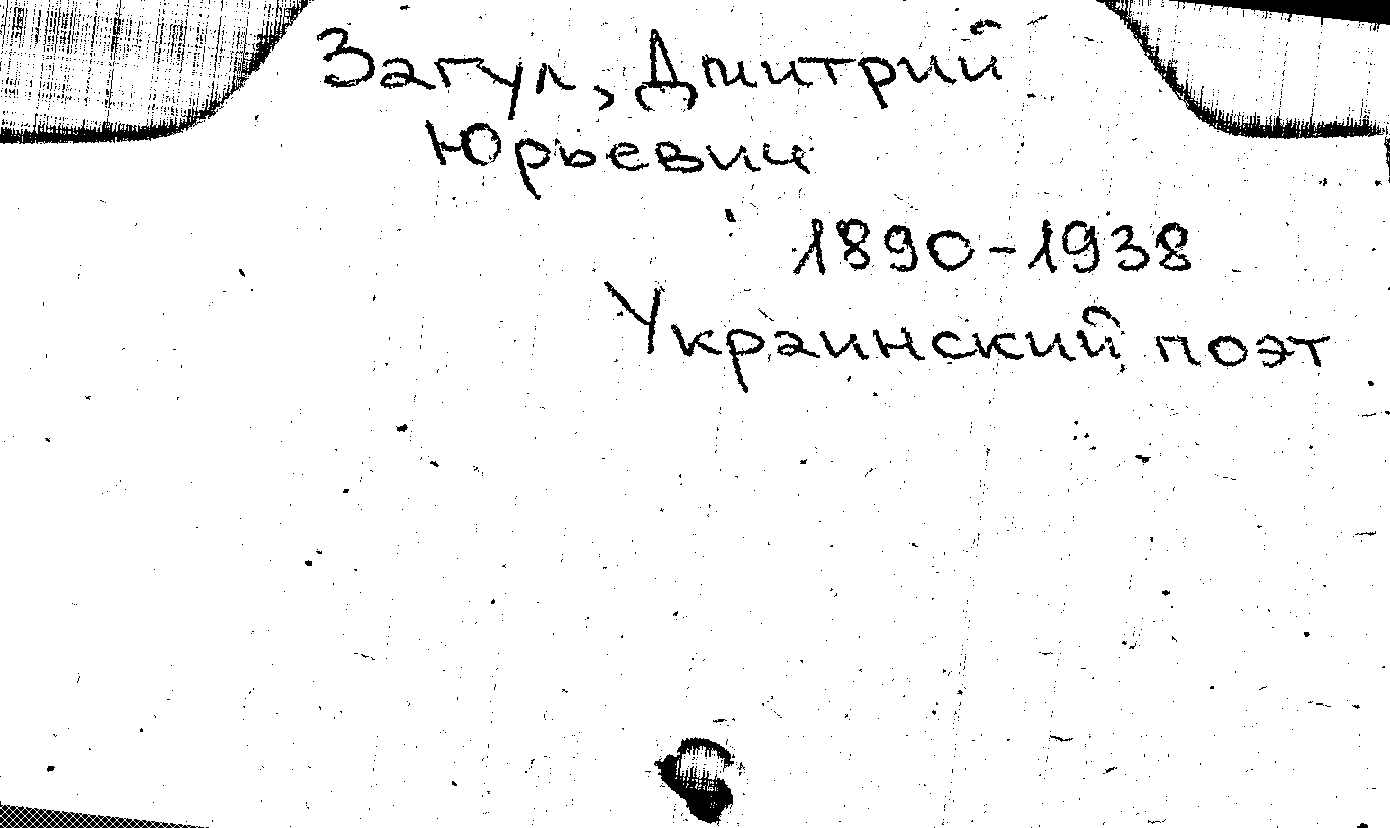 Загул, Дмитрий
Юрьевич
1890-1938
Украинский поэт